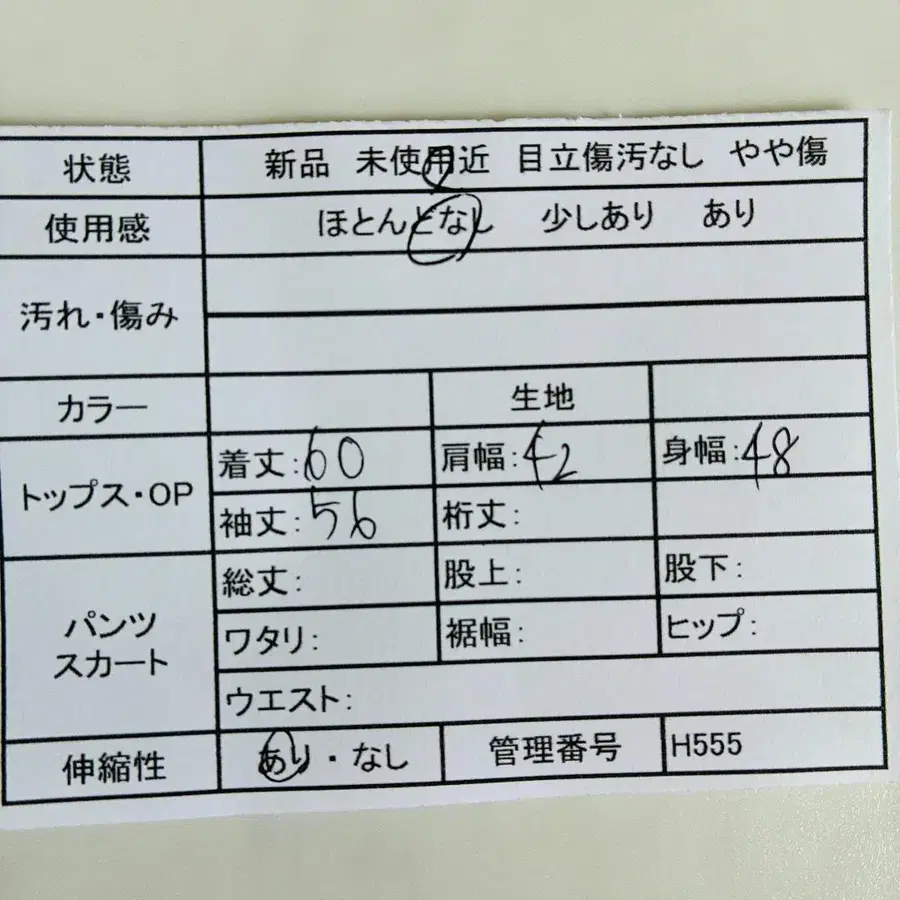 状態 新品 未使用近 目立傷汚なし やや傷
使用感 ほとんどなし 少しあり あり
汚れ・傷み
カラー 生地
トップス・OP
着丈:60 肩幅:42 身幅:48
袖丈:56 裄丈:
パンツ
スカート
総丈: 股上: 股下:
ワタリ: 裾幅: ヒップ:
ウエスト:
伸縮性 あり・なし 管理番号 H555